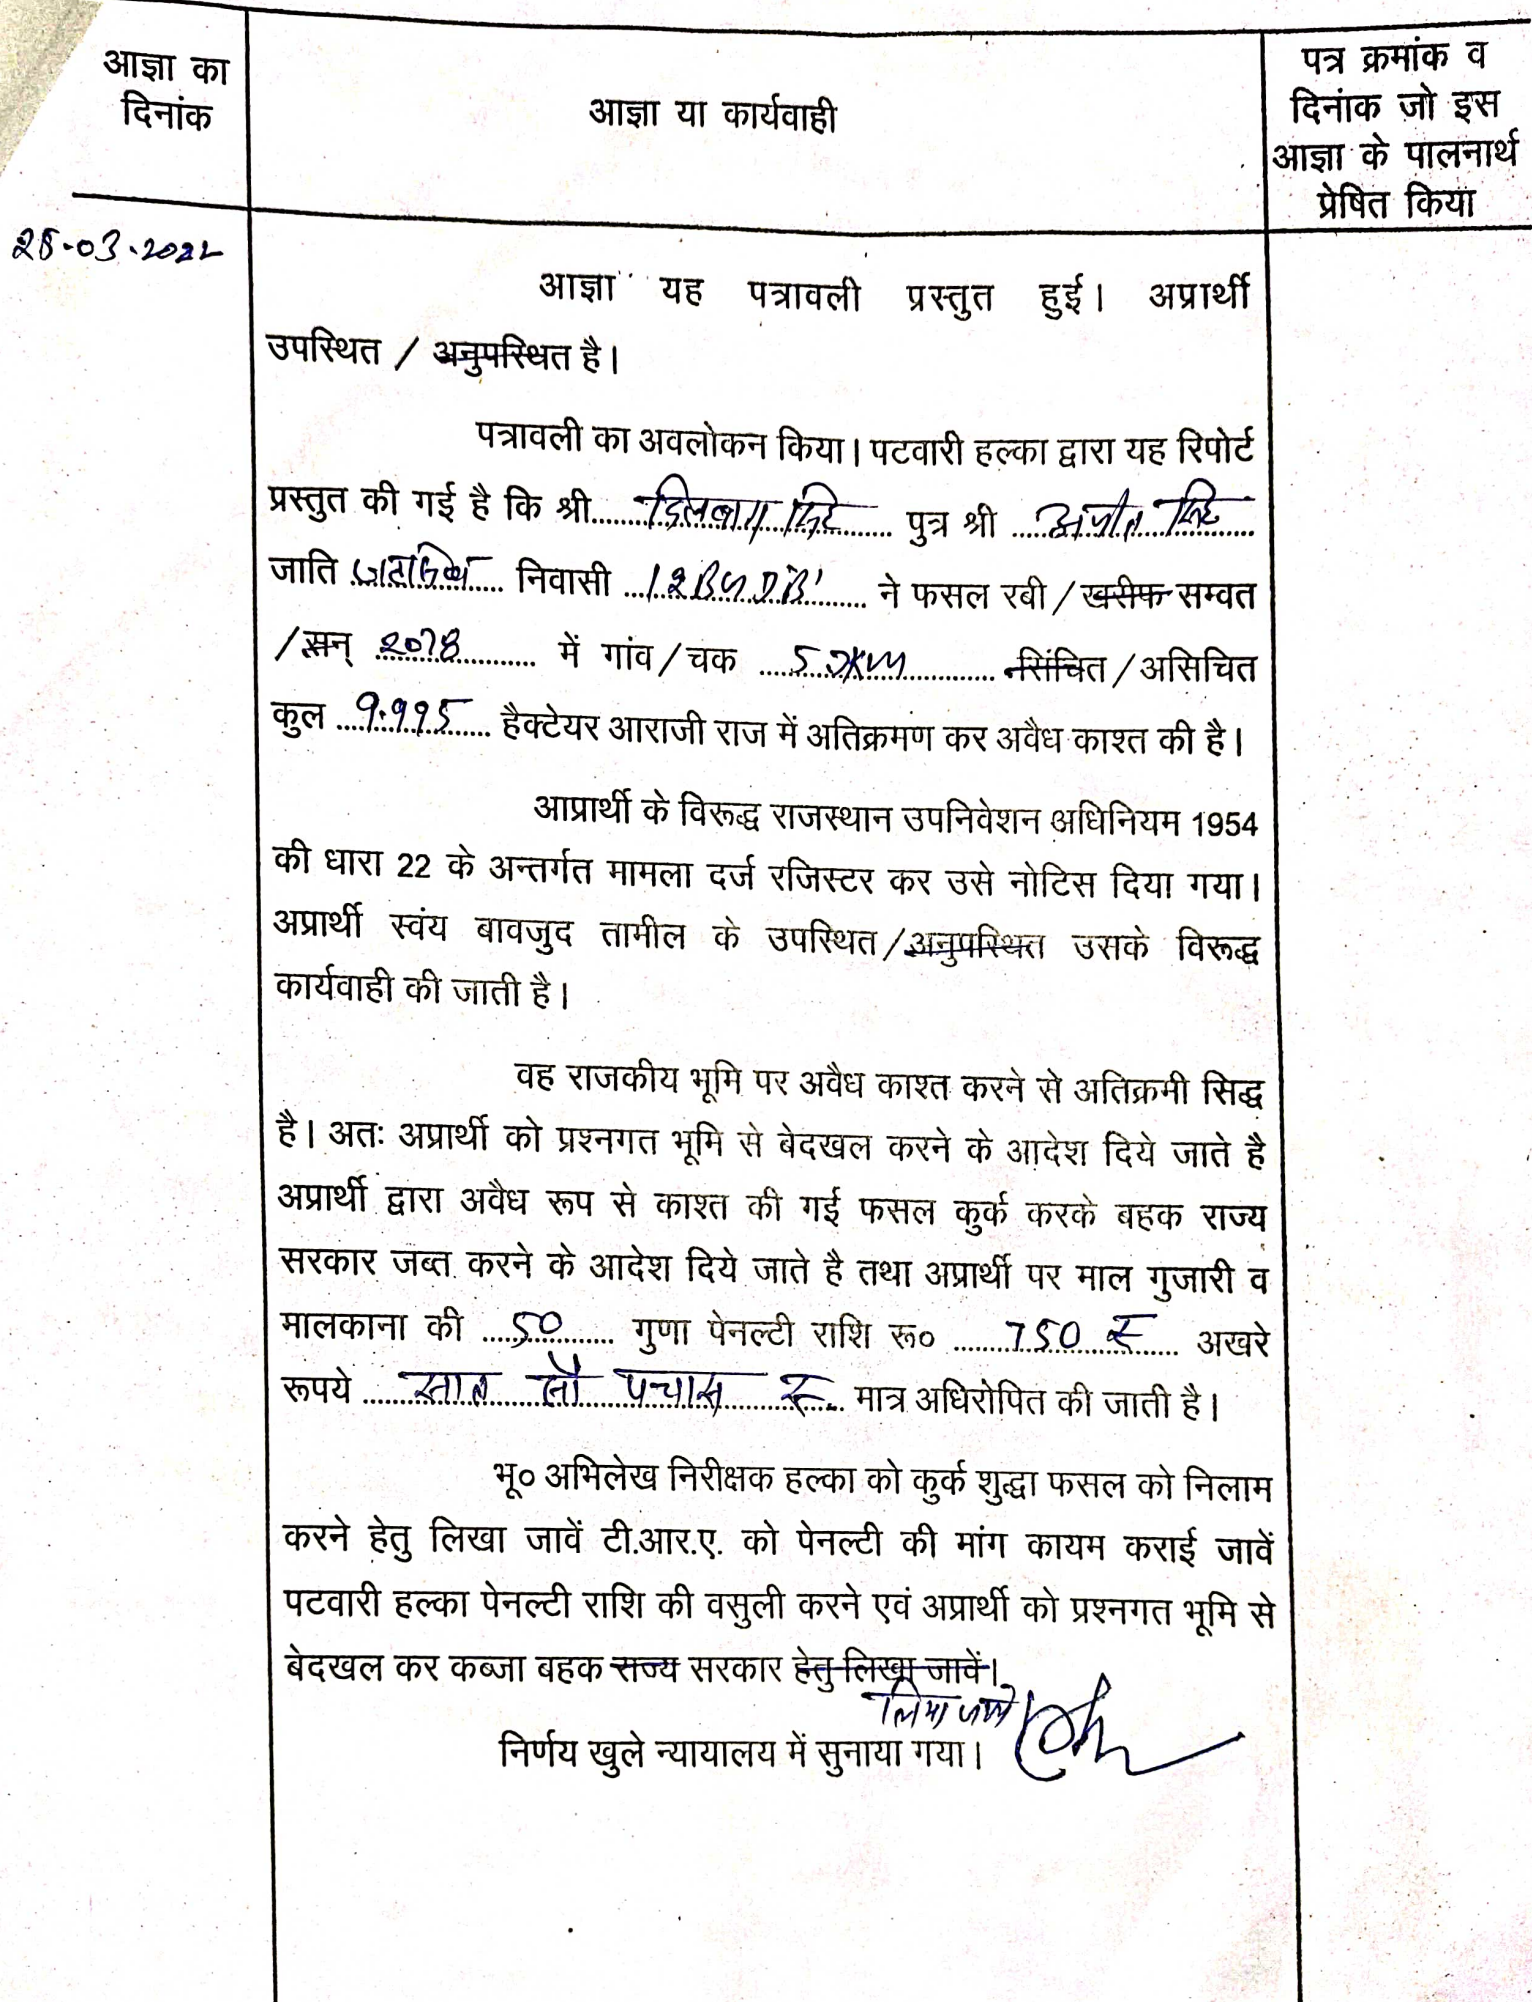 आज्ञा का
दिनांक
आज्ञा या कार्यवाही
पत्र क्रमांक व
दिनांक जो इस
आज्ञा के पालनार्थ
प्रेषित किया
28-03-2022
आज्ञा यह पत्रावली प्रस्तुत हुई। अप्रार्थी
उपस्थित / अनुपस्थित है।
पत्रावली का अवलोकन किया। पटवारी हल्का द्वारा यह रिपोर्ट
प्रस्तुत की गई है कि श्री दिलबाग सिंह पुत्र श्री अजीत सिंह
जाति जटसिख निवासी ने फसल रबी / खरीफ सम्वत
/ सन् 2078 में गांव / चक सिंचित / असिचित
कुल 9.995 हैक्टेयर आराजी राज में अतिक्रमण कर अवैध काश्त की है।
आप्रार्थी के विरूद्ध राजस्थान उपनिवेशन अधिनियम 1954
की धारा 22 के अन्तर्गत मामला दर्ज रजिस्टर कर उसे नोटिस दिया गया।
अप्रार्थी स्वंय बावजुद तामील के उपस्थित / अनुपस्थित उसके विरूद्ध
कार्यवाही की जाती है।
वह राजकीय भूमि पर अवैध काश्त करने से अतिक्रमी सिद्ध
है। अतः अप्रार्थी को प्रश्नगत भूमि से बेदखल करने के आदेश दिये जाते है
अप्रार्थी द्वारा अवैध रूप से काश्त की गई फसल कुर्क करके बहक राज्य
सरकार जब्त करने के आदेश दिये जाते है तथा अप्रार्थी पर माल गुजारी व
मालकाना की 50 गुणा पेनल्टी राशि रू० 750 रु अखरे
रूपये सात सौ पचास रु मात्र अधिरोपित की जाती है।
भू० अभिलेख निरीक्षक हल्का को कुर्क शुद्धा फसल को निलाम
करने हेतु लिखा जावें टी.आर.ए. को पेनल्टी की मांग कायम कराई जावें
पटवारी हल्का पेनल्टी राशि की वसुली करने एवं अप्रार्थी को प्रश्नगत भूमि से
बेदखल कर कब्जा बहक राज्य सरकार हेतु लिखा जावें।
लिया जावे
निर्णय खुले न्यायालय में सुनाया गया।